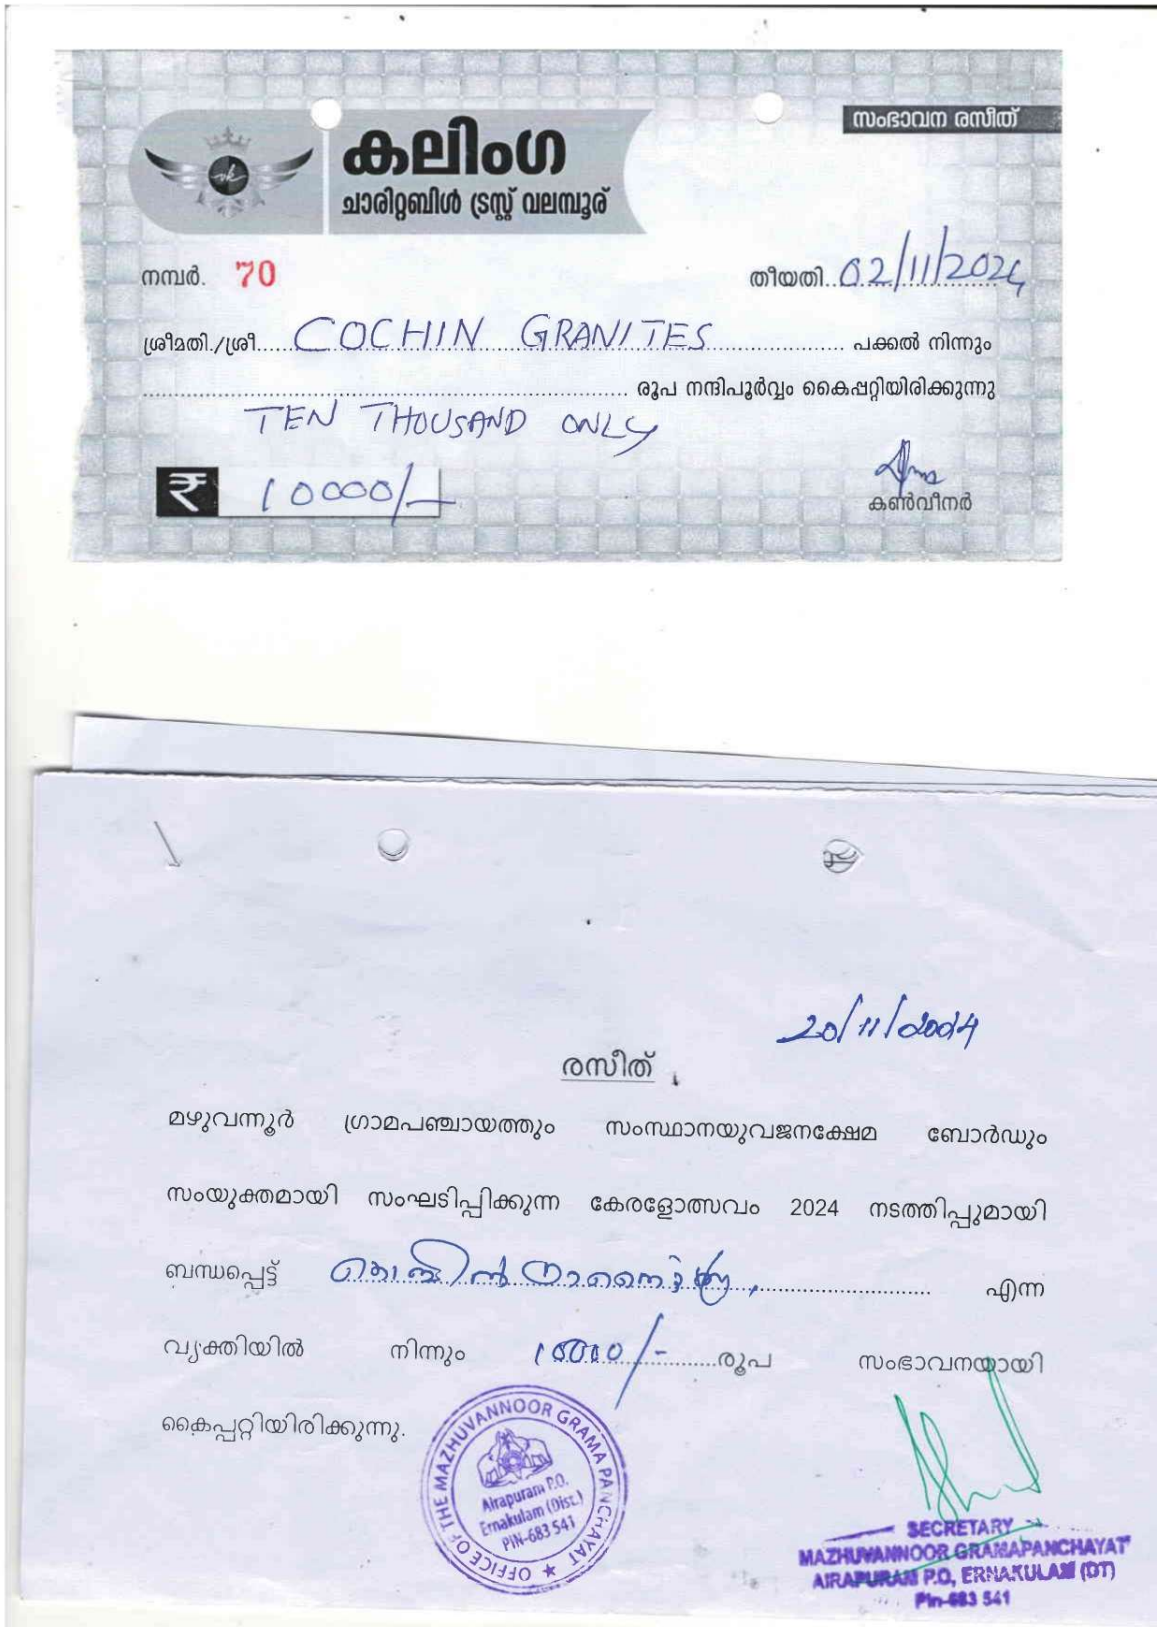 സംഭാവന രസീത്
കലിംഗ
ചാരിറ്റബിൾ ട്രസ്റ്റ് വലമ്പൂര്
നമ്പർ. 70
തീയതി..02/11/2024
ശ്രീമതി./ശ്രീ.....COCHIN GRANITES..................... പക്കൽ നിന്നും
........................................................................ രൂപ നന്ദിപൂർവ്വം കൈപ്പറ്റിയിരിക്കുന്നു
TEN THOUSAND ONLY
₹ 10000/-
കൺവീനർ
20/11/2024
രസീത്
മഴുവന്നൂർ ഗ്രാമപഞ്ചായത്തും സംസ്ഥാനയുവജനക്ഷേമ ബോർഡും
സംയുക്തമായി സംഘടിപ്പിക്കുന്ന കേരളോത്സവം 2024 നടത്തിപ്പുമായി
ബന്ധപ്പെട്ട് എന്ന
വ്യക്തിയിൽ നിന്നും 10000/-..........രൂപ സംഭാവനയായി
കൈപ്പറ്റിയിരിക്കുന്നു.
OFFICE OF THE MAZHUVANNOOR GRAMA PANCHAYAT
Airapuram P.O.
Ernakulam (Dist.)
PIN-683 541
SECRETARY
MAZHUVANNOOR GRAMAPANCHAYAT
AIRAPURAM P.O, ERNAKULAM (DT)
Pin-683 541